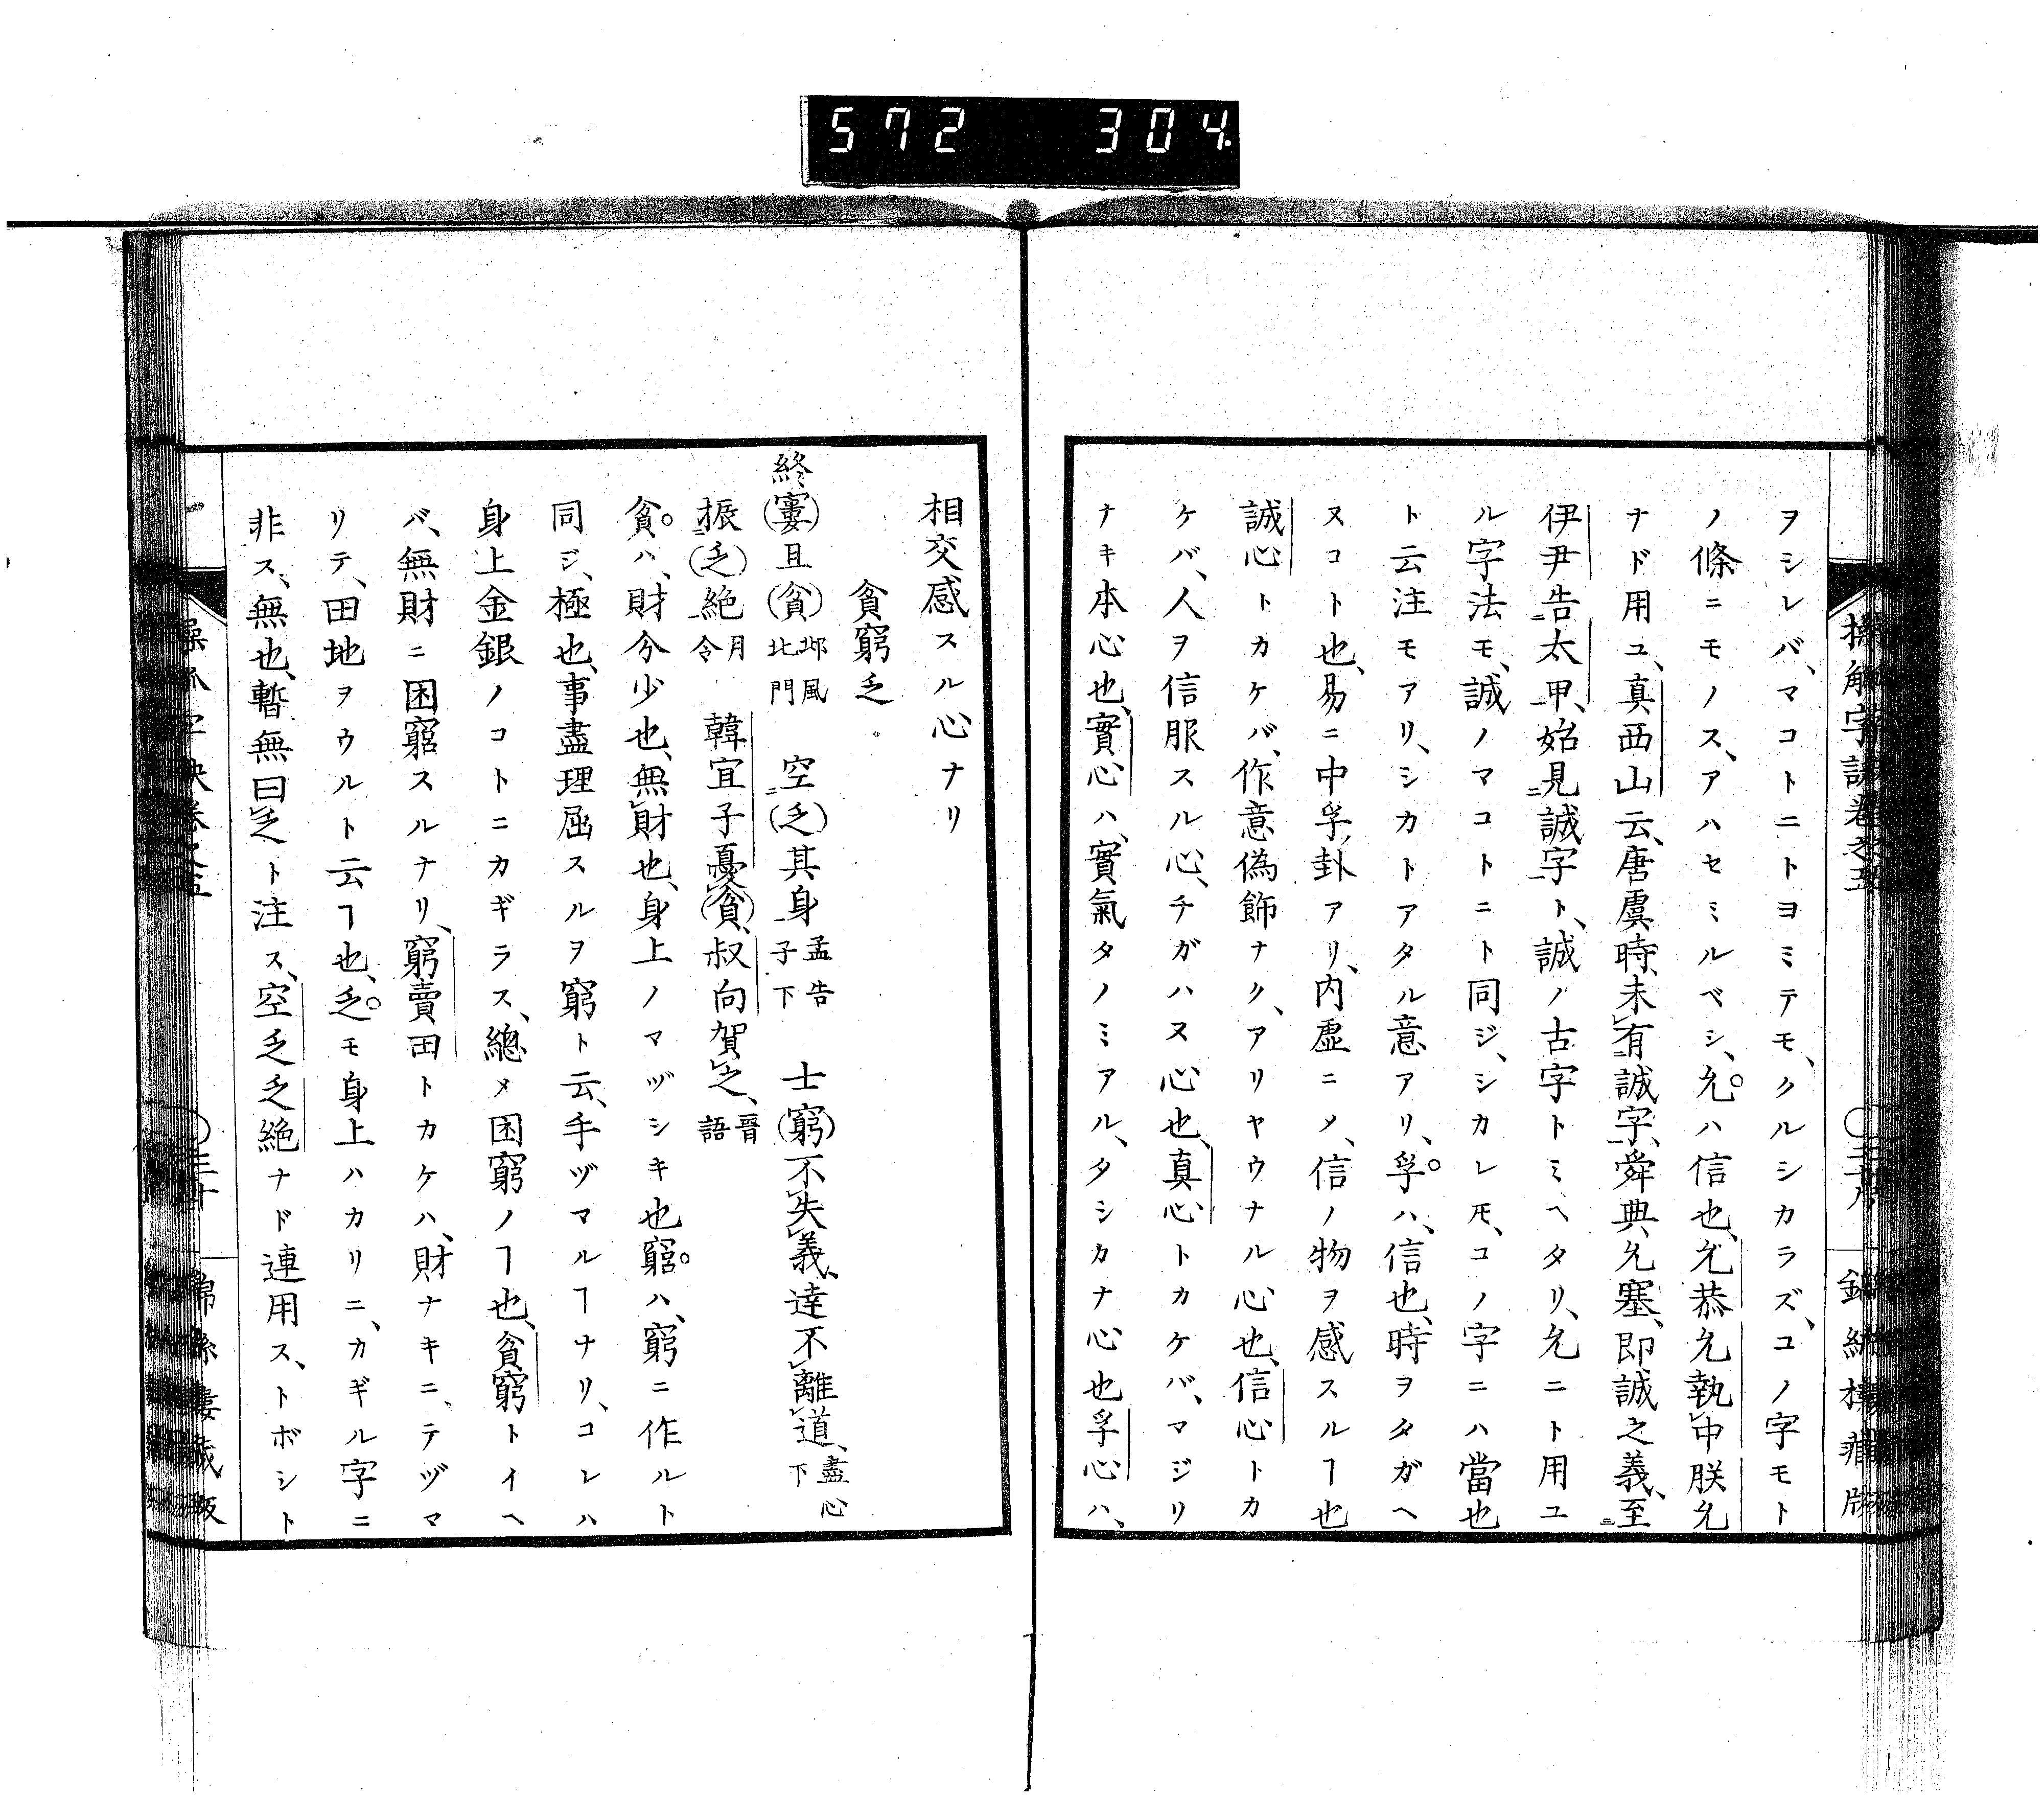 572 304.
ヲシレバ、マコトニトヨミテモ、クルシカラズ、コノ字モト
ノ條ニモノス、アハセミルベシ、允ハ信也、允恭允執中朕允
ナド用ユ、真西山云、唐虞時、未有誠字、舜典允塞、即誠之義、至
伊尹告太甲、始見誠字ト、誠ノ古字トミヘタリ、允ニト用ユ
ル字法モ、誠ノマコトニト同ジ、シカレ𪜈、コノ字ニハ當也
ト云注モアリ、シカトアタル意アリ、孚ハ、信也、時ヲタガヘ
ヌコト也、易ニ中孚卦アリ、内虚ニメ、信ノ物ヲ感スルヿ也
誠心トカケバ、作意偽飾ナク、アリヤウナル心也、信心トカ
ケバ、人ヲ信服スル心、チガハヌ心也、真心トカケバ、マジリ
ナキ本心也、實心ハ、實氣タノミアル、タシカナ心也孚心ハ、
相交感スル心ナリ
貧窮乏
終(窶)且(貧)邶風北門 空(乏)其身孟子告下 士(窮)不失義、達不離道、盡心下
振(乏)絶月令 韓宣子憂(貧)、叔向賀之、晋語
貧ハ、財分少也、無財也、身上ノマヅシキ也窮ハ、窮ニ作ルト
同ジ、極也、事盡理屈スルヲ窮ト云、手ヅマルヿナリ、コレハ
身上金銀ノコトニカギラス、總メ困窮ノヿ也、貧窮トイヘ
バ、無財ニ困窮スルナリ、窮賣田トカケハ、財ナキニ、テヅマ
リテ、田地ヲウルト云ヿ也、乏モ身上ハカリニ、カギル字ニ
非ス、無也、暫無曰乏ト注ス、空乏乏絶ナド連用ス、トボシト